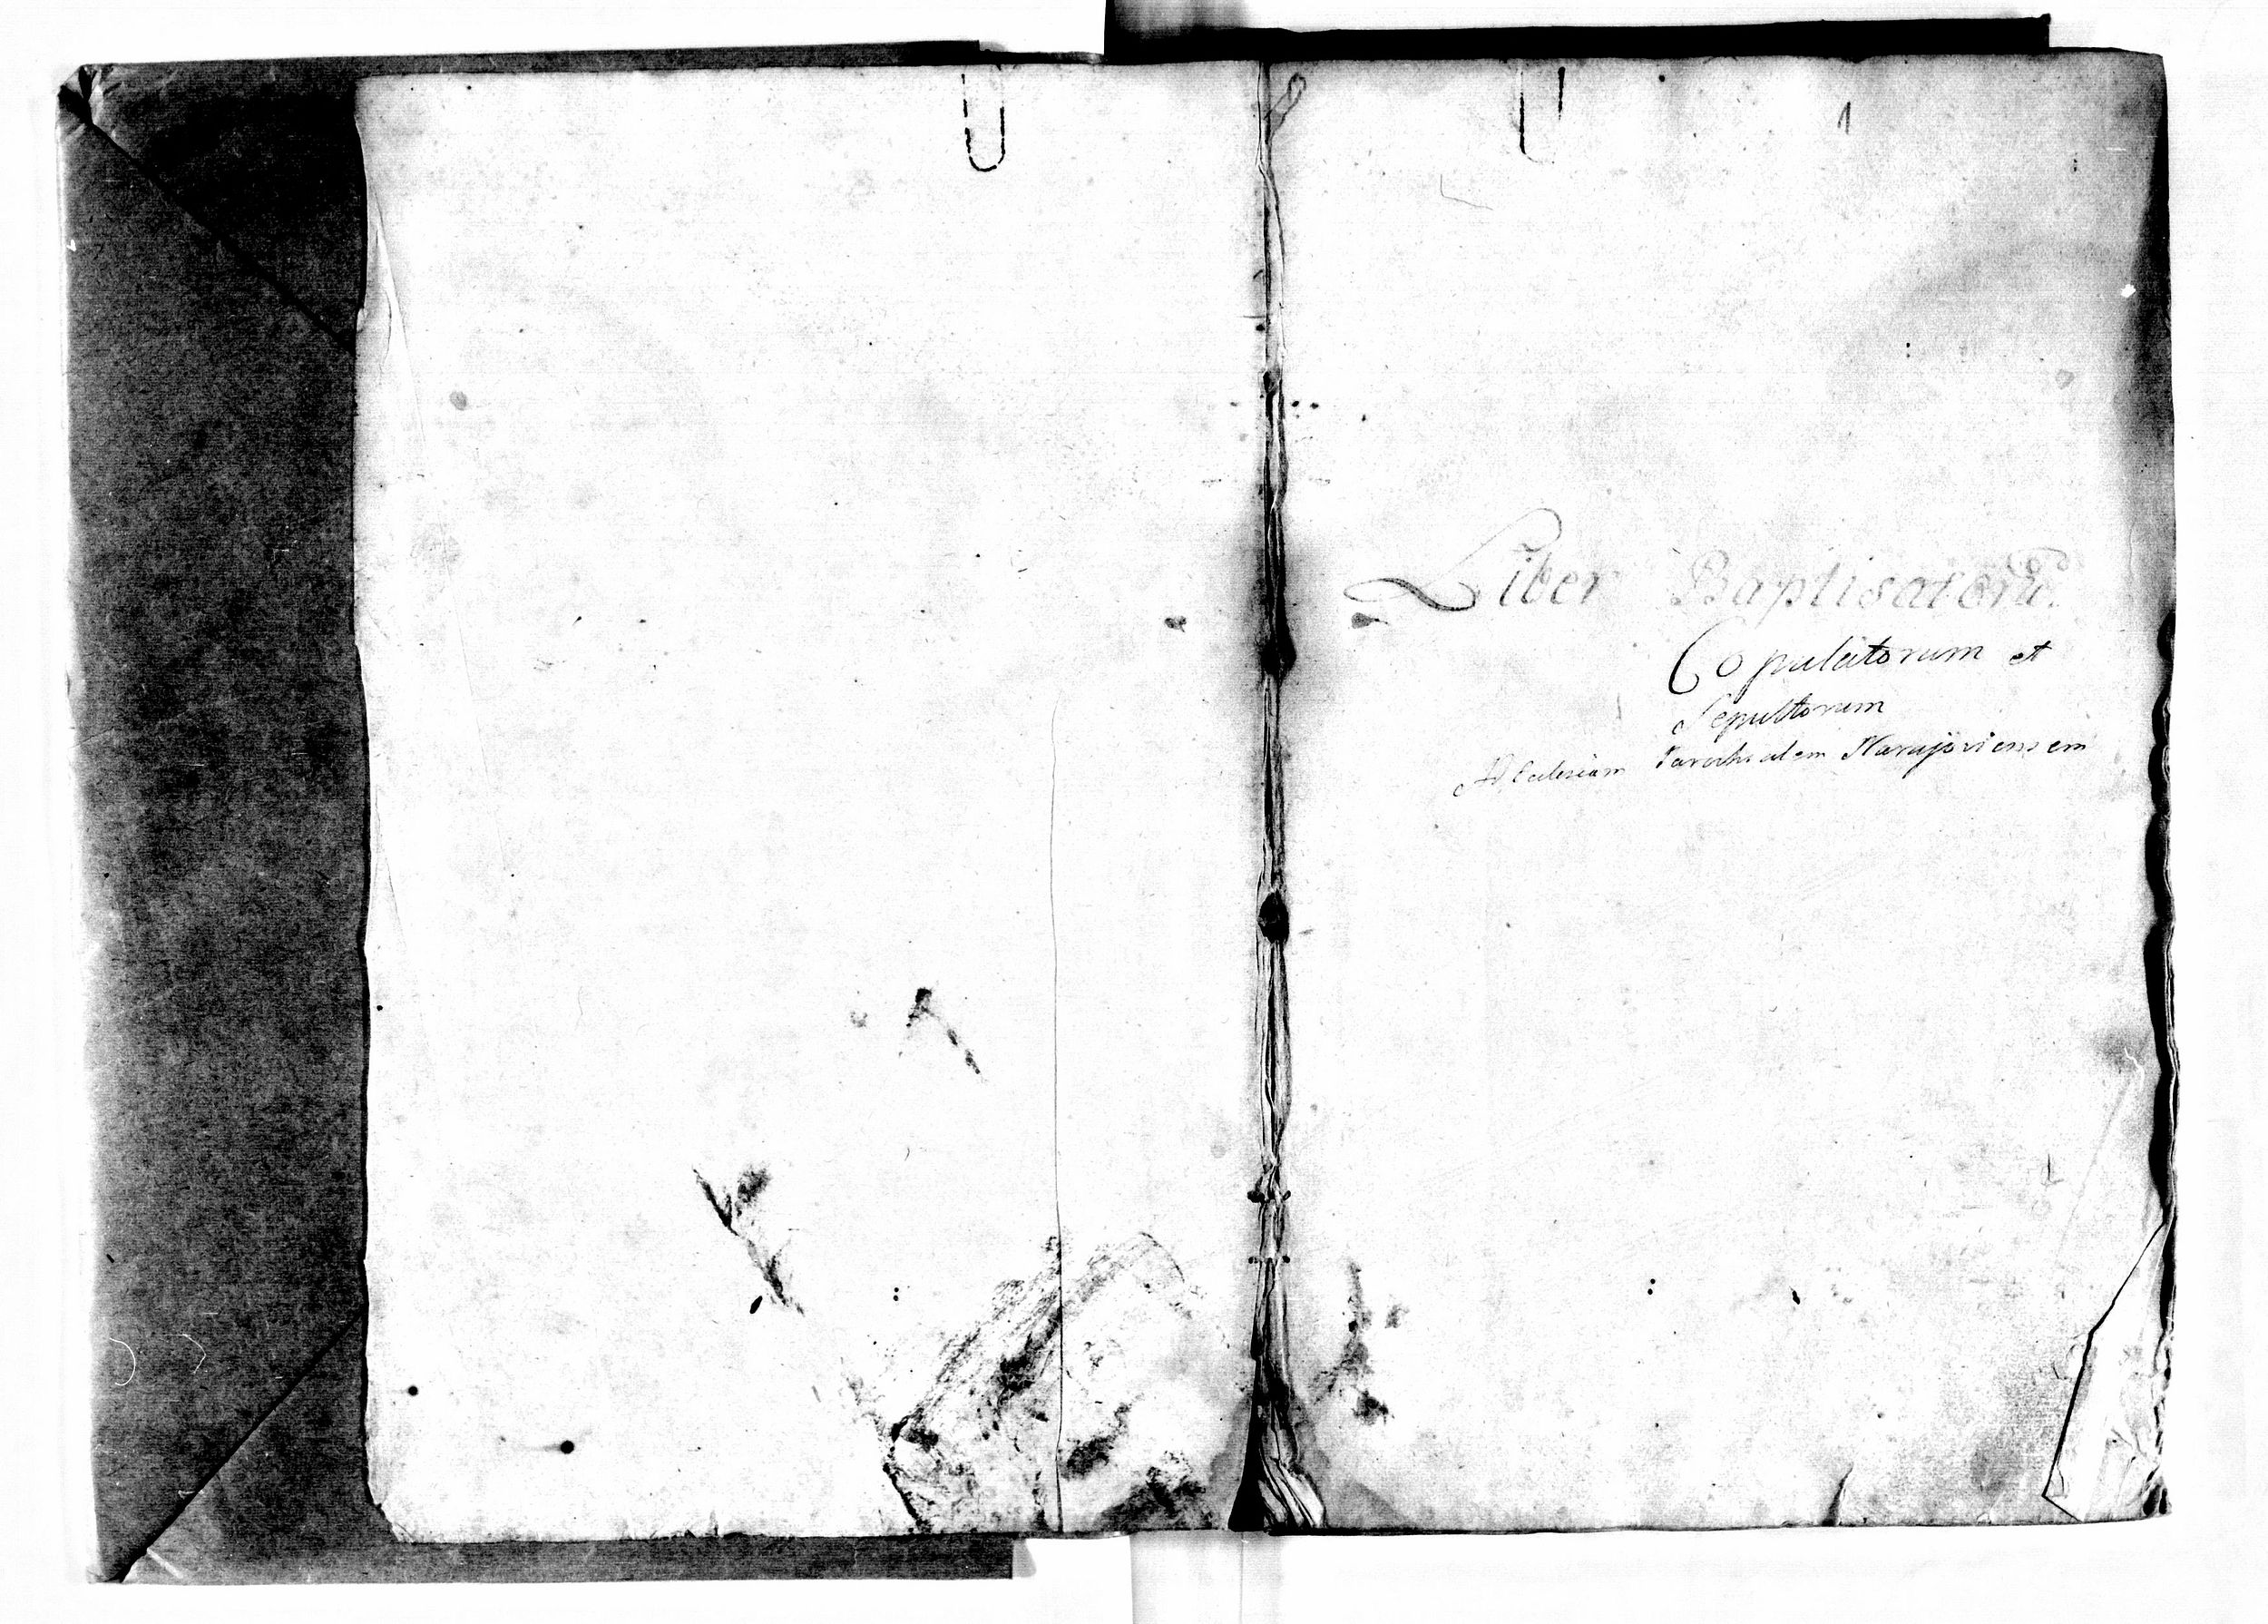 1
Liber Baptisatorũ.
Copulatorum et
Sepultorum
Ad Eclesiam Parochialem Narajoviensem